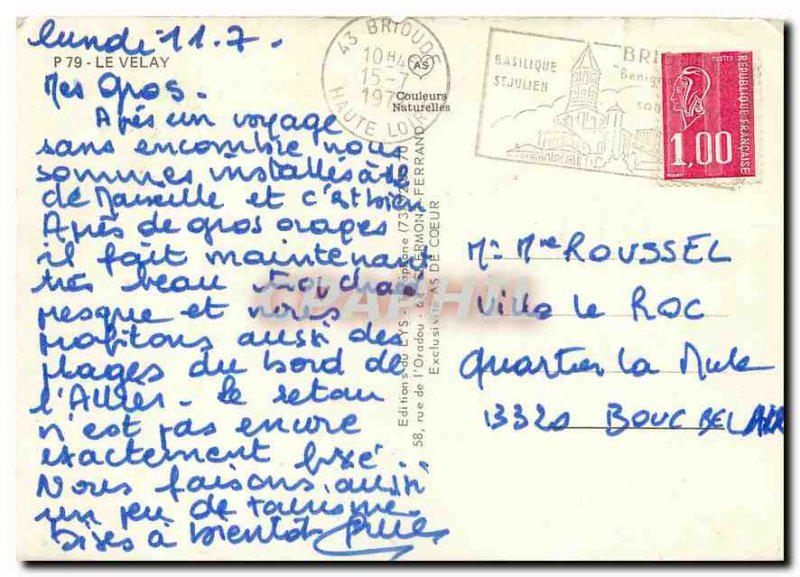 lundi 11.7.
P 79 - LE VELAY
Mes Gros.
Après un voyage
sans encombre nous
sommes installés
de Marseille et c'est bien
Après de gros orages
il fait maintenant
très beau trop chaud
presque et nous
profitons aussi des
plages du bord de
l'Allier - le retour
n'est pas encore
exactement fixé...
Nous faisons aussi
un peu de tourisme
Bises à bientôt
43 BRIOUDE
10 H
15-7
197
HAUTE LOIRE
AS
Couleurs
Naturelles
BASILIQUE
ST JULIEN
BRI
POSTES
REPUBLIQUE FRANÇAISE
1,00
Editions du LYS - Téléphone (73)
58, rue de l'Oradou - CLERMONT-FERRAND
Exclusivité AS DE CŒUR
CPAPHIL
Mr Mme ROUSSEL
Villa le ROC
Quartier La Mule
13320 BOUC BEL AIR